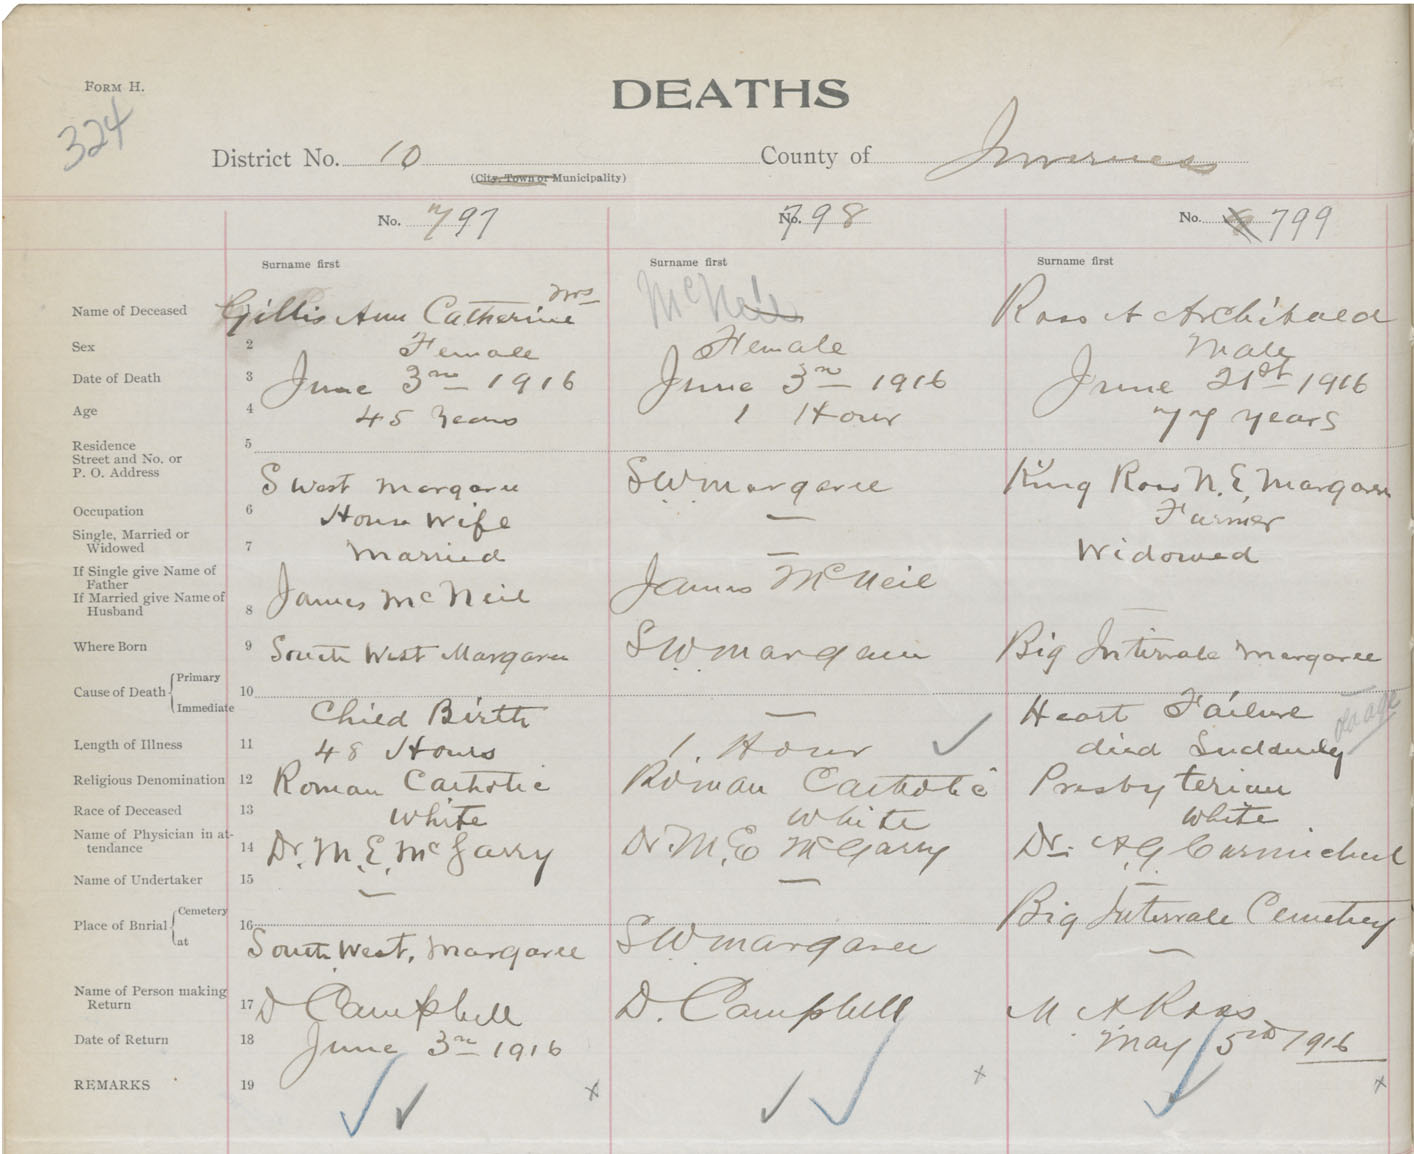 FORM H.
DEATHS
324
District No. 10 County of Inverness
(City, Town or Municipality)
No. 797 No. 798 No. 799
Surname first Surname first Surname first
Name of Deceased 1 Gillis Ann Catherine Mrs McNeil Ross A Archibald
Sex 2 Female Female Male
Date of Death 3 June 3rd 1916 June 3rd 1916 June 21st 1916
Age 4 45 Years 1 Hour 77 years
Residence 5
Street and No. or
P. O. Address S West Margaree S W Margaree King Ross N. E. Margaree
Occupation 6 House Wife — Farmer
Single, Married or
Widowed 7 Married — Widowed
If Single give Name of
Father
If Married give Name of
Husband 8 James McNeil James McNeil —
Where Born 9 South West Margaree S W Margaree Big Intervale Margaree
Cause of Death Primary 10
Immediate Child Birth — Heart Failure old age
Length of Illness 11 48 Hours 1 Hour died Suddenly
Religious Denomination 12 Roman Catholic Roman Catholic Presbyterian
Race of Deceased 13 White White White
Name of Physician in at-
tendance 14 Dr. M. E. McGarry Dr. M. E. McGarry Dr. A. G. Carmichael
Name of Undertaker 15 — — —
Place of Burial Cemetery 16 Big Intervale Cemetery
at South West, Margaree S W Margaree —
Name of Person making
Return 17 D Campbell D. Campbell M A Ross
Date of Return 18 June 3rd 1916 May 1916
REMARKS 19 x x x